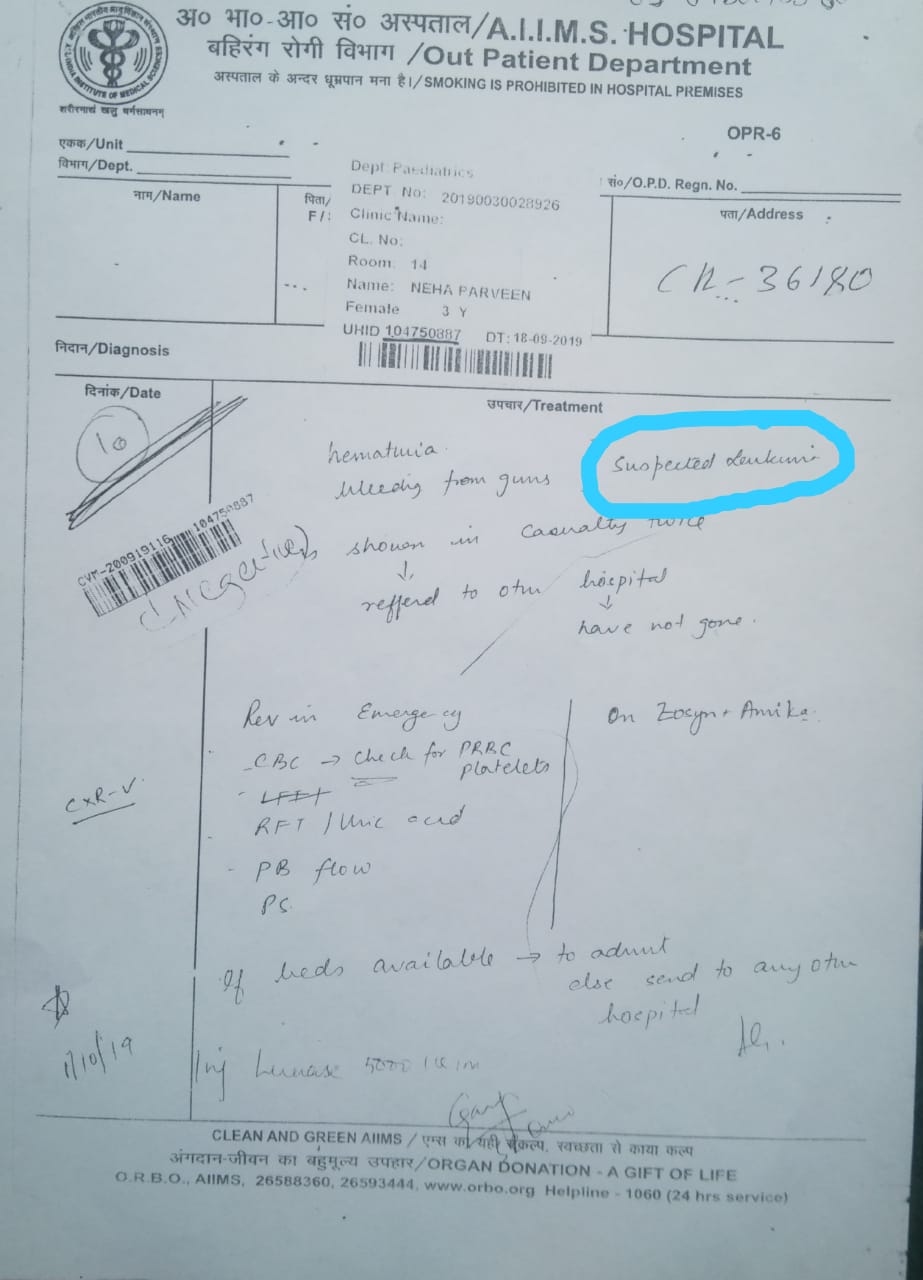 अ० भा०-आ० सं० अस्पताल/A.I.I.M.S. HOSPITAL
बहिरंग रोगी विभाग /Out Patient Department
अस्पताल के अन्दर धूम्रपान मना है।/SMOKING IS PROHIBITED IN HOSPITAL PREMISES
शरीरमाद्यं खलु धर्मसाधनम्
OPR-6
एकक/Unit
विभाग/Dept.
Dept: Paediatrics
सं०/O.P.D. Regn. No.
नाम/Name
पिता/
F/
DEPT No: 20190030028926
पता/Address
Clinic Name:
CL. No:
Room: 14
CR-36180
Name: NEHA PARVEEN
Female 3 Y
UHID 104750887 DT: 18-09-2019
निदान/Diagnosis
दिनांक/Date
उपचार/Treatment
10
hematuria
Suspected Leukemia
bleeding from gums
CVM-200919116 104750887
shown in casualty twice
↓
reffered to other hospital
↓
have not gone.
Rev in Emergency
On Zosyn + Amika
CBC → check for PRBC
platelets
CXR-V
RFT / Uric acid
- PB flow
PS
If beds available → to admit
else send to any other
hospital
1/10/19
Inj 5000 IU im
CLEAN AND GREEN AIIMS / एम्स का यही संकल्प, स्वच्छता से काया कल्प
अंगदान-जीवन का बहुमूल्य उपहार/ORGAN DONATION - A GIFT OF LIFE
O.R.B.O., AIIMS, 26588360, 26593444, www.orbo.org Helpline - 1060 (24 hrs service)